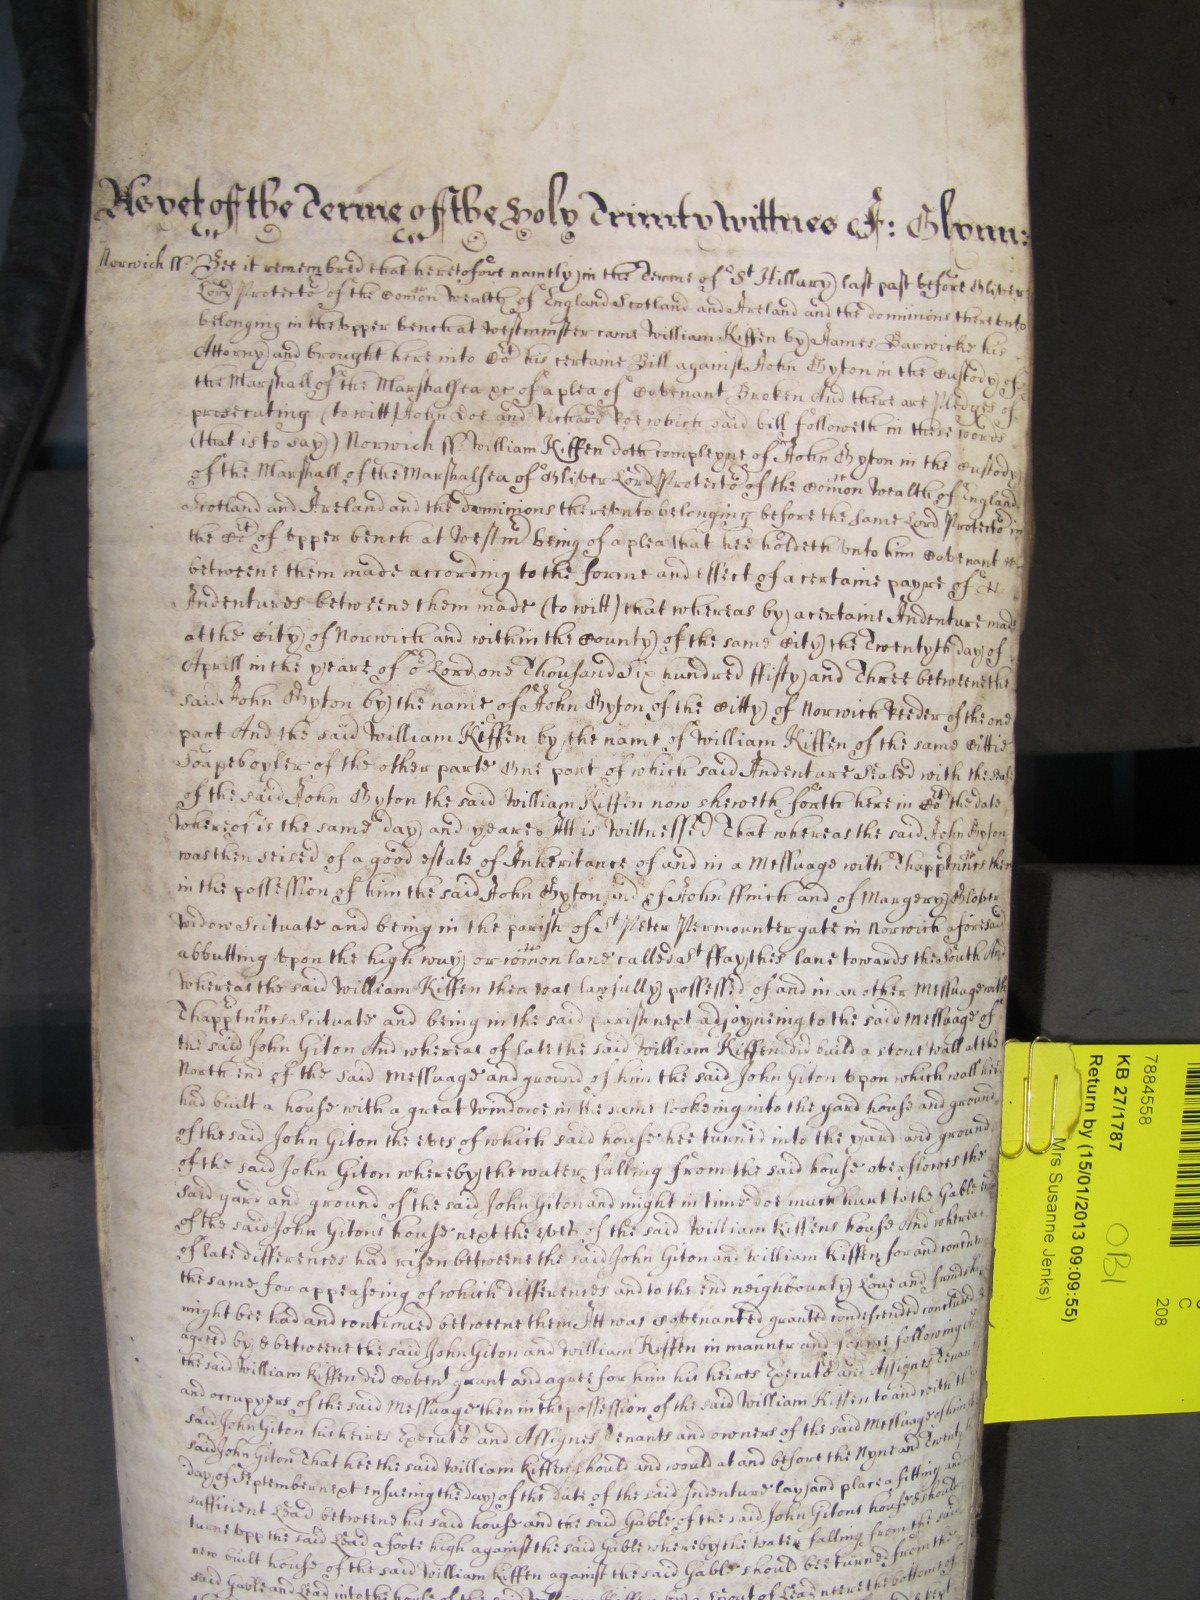 As yet of the Terme of the Holy Trinity Wittnes J: Glynn:
Norwich ss. Bee it remembred that heretofore namely in the Terme of St Hillary last past before Oliver
Lord Protector of the Comon Wealth of England Scotland and Ireland and the dominions therevnto
belonging in the vpper bench at Westminster came William Kiffen by James Barwicke his
Attorny and brought here into Cort his certaine Bill against John Gyton in the Custody of
the Marshall of the Marshalsea &c of a plea of Covenant Broken And there are Pledges of
prosecuting (to witt) John Doe and Richard Roe which said bill followeth in these words
(that is to say) Norwich ss. William Kiffen doth compleyne of John Gyton in the Custody
of the Marshall of the Marshalsea of Oliver Lord Protector of the Comon Wealth of England
Scotland and Ireland and the dominions therevnto belonging before the same Lord Protector in
the Cort of vpper bench at Westmr being of a plea that hee holdeth vnto him Covenant
betweene them made according to the forme and effect of a certaine payre of
Indentures betweene them made (to witt) that whereas by a certaine Indenture made
at the City of Norwich and within the County of the same City the Twentyth day of
Aprill in the yeare of or Lord one Thousand Six hundred ffifty and Three betweene the
said John Gyton by the name of John Gyton of the Citty of Norwich of the one
part And the said William Kiffen by the name of William Kiffen of the same Cittie
Soapeboyler of the other parte One part of which said Indenture Sealed with the seale
of the said John Gyton the said William Kiffen now sheweth forth here in Cort the date
whereof is the same day and yeare It is Wittnessed That whereas the said John Gyton
was then seised of a good estate of Inheritance of and in a Messuage with Thapptnncs then
in the possession of him the said John Gyton and of John ffinch and of Margery Glover
widow Scituate and being in the parish of St Peter Permountergate in Norwich aforesaid
abbutting vpon the high way or comon lane called St ffaythes lane towards the South And
whereas the said William Kiffen then was lawfully possessed of and in an other Messuage with
Thapptnncs Scituate and being in the said parish next adjoyneing to the said Messuage of
the said John Giton And whereas of late the said William Kiffen did build a stone wall at the
North end of the said Messuage and ground of him the said John Giton vpon which wall hee
had built a house with a great Windowe in the same lookeing into the yard house and ground
of the said John Giton the eves of which said house hee turned into the yard and ground
of the said John Giton whereby the water falling from the said house overflowes the
said yard and ground of the said John Giton and might in time doe much hurt to the Gable end
of the said John Gitons house next the eves of the said William Kiffens house And whereas
of late differences had risen betweene the said John Giton and William Kiffen for and concerning
the same for appeasing of which differences and to the end neighbourly Love and
might bee had and continued betweene them It was Covenanted granted condescended concluded
agreed by & betweene the said John Giton and William Kiffen in manner and forme following
the said William Kiffen did Covent grant and agree for him his heires Executors and Assignes Tenants
and occupyers of the said Messuage then in the possession of the said William Kiffen to and with the
said John Giton his heires Executors and Assignes Tenants and owners of the said Messuage of him the
said John Giton That hee the said William Kiffen should and would at and before the Nyne and Twentyth
day of September next ensueing the day of the date of the said Indenture lay and place a fitting and
sufficient Lead betweene his said house and the said Gable of the said John Gitons house & should
turne vpp the said Lead a foote high against the said Gable whereby the water falling from the said
new built house of the said William Kiffen against the said Gable should bee turned from the
said Gable and Lead into the house of the said William Kiffen by a Spout of Lead neere the bottom of
7884558
KB 27/1787
Return by (15/01/2013 09:09:55)
Mrs Susanne Jenks)
OBI
C
208